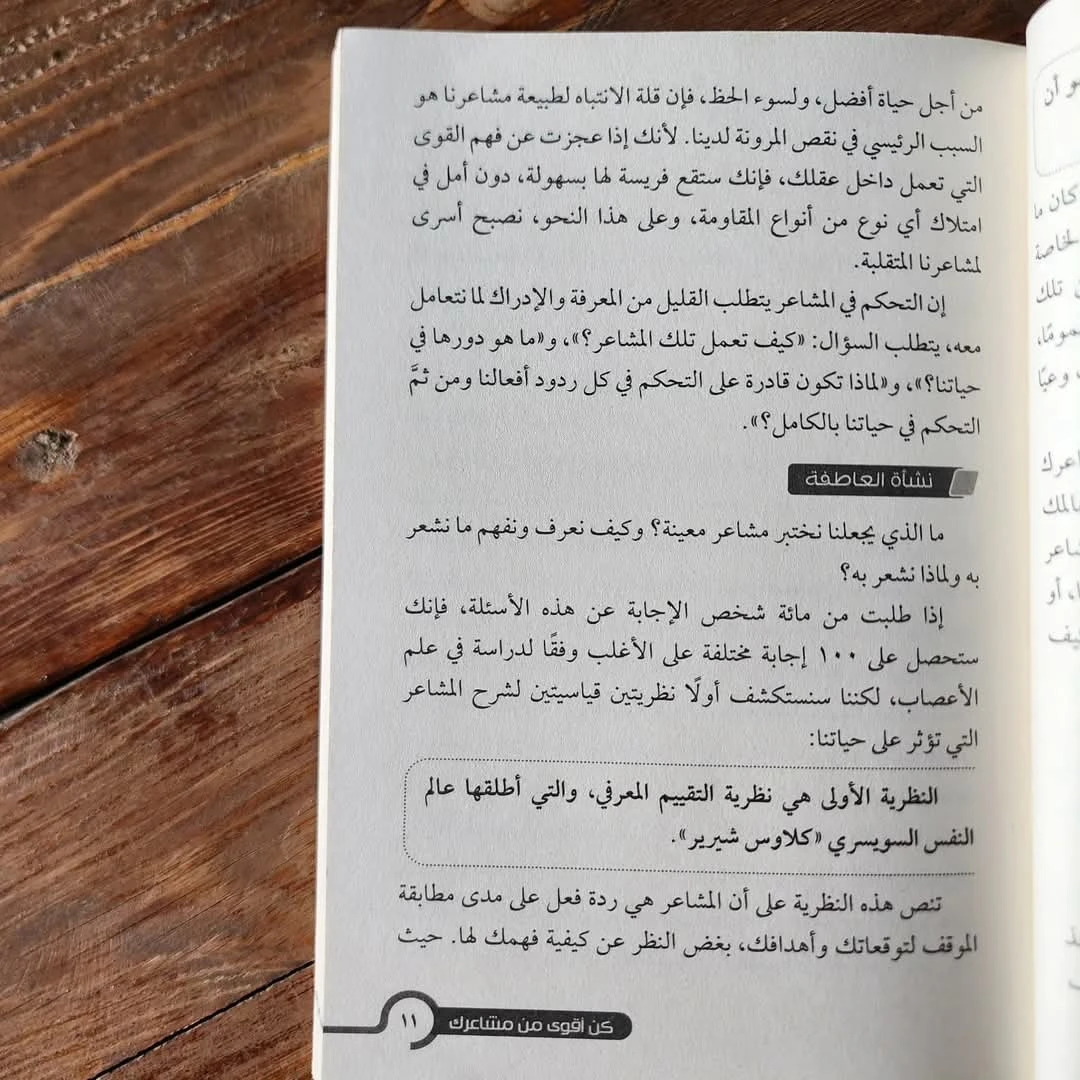 من أجل حياة أفضل، ولسوء الحظ، فإن قلة الانتباه لطبيعة مشاعرنا هو
السبب الرئيسي في نقص المرونة لدينا. لأنك إذا عجزت عن فهم القوى
التي تعمل داخل عقلك، فإنك ستقع فريسة لها بسهولة، دون أمل في
امتلاك أي نوع من أنواع المقاومة، وعلى هذا النحو، نصبح أسرى
لمشاعرنا المتقلبة.
إن التحكم في المشاعر يتطلب القليل من المعرفة والإدراك لما نتعامل
معه، يتطلب السؤال: «كيف تعمل تلك المشاعر؟»، و«ما هو دورها في
حياتنا؟»، و«لماذا تكون قادرة على التحكم في كل ردود أفعالنا ومن ثمَّ
التحكم في حياتنا بالكامل؟».
نشأة العاطفة
ما الذي يجعلنا نختبر مشاعر معينة؟ وكيف نعرف ونفهم ما نشعر
به ولماذا نشعر به؟
إذا طلبت من مائة شخص الإجابة عن هذه الأسئلة، فإنك
ستحصل على ١٠٠ إجابة مختلفة على الأغلب وفقًا لدراسة في علم
الأعصاب، لكننا سنستكشف أولًا نظريتين قياسيتين لشرح المشاعر
التي تؤثر على حياتنا:
النظرية الأولى هي نظرية التقييم المعرفي، والتي أطلقها عالم
النفس السويسري «كلاوس شيرير».
تنص هذه النظرية على أن المشاعر هي ردة فعل على مدى مطابقة
الموقف لتوقعاتك وأهدافك، بغض النظر عن كيفية فهمك لها. حيث
كن أقوى من مشاعرك
١١
و أن
كان ما
تلك